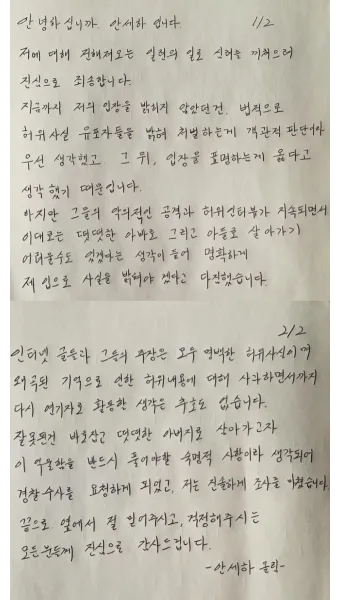 안녕하십니까. 안세하 입니다. 1/2
저에 대해 전해져오는 일련의 일로 심려를 끼쳐드려
진심으로 죄송합니다.
지금까지 저의 입장을 밝히지 않았던건. 법적으로
허위사실 유포자들을 밝혀 처벌하는게 객관적 판단이라
우선 생각했고. 그 뒤, 입장을 표명하는게 옳다고
생각했기 때문입니다.
하지만 그들의 악의적인 공격과 허위인터뷰가 지속되면서
이대로는 떳떳한 아빠로 그리고 아들로 살아가기
어려울수도 있겠다는 생각이 들어 명확하게
제 입으로 사실을 밝혀야 겠다고 다짐했습니다.
2/2
인터넷 글들과 그들의 주장은 모두 명백한 허위사실이며
왜곡된 기억으로 인한 허위내용에 대해 사과하면서까지
다시 연기자로 활동한 생각은 추호도 없습니다.
잘못된건 바로잡고 떳떳한 아버지로 살아가고자
이 억울함을 반드시 풀어야할 숙명적 사항이라 생각되어
경찰수사를 요청하게 되었고, 저는 진솔하게 조사를 마쳤습니다.
끝으로 옆에서 절 믿어주시고, 걱정해주시는
모든분들께 진심으로 감사드립니다.
-안세하 올림-